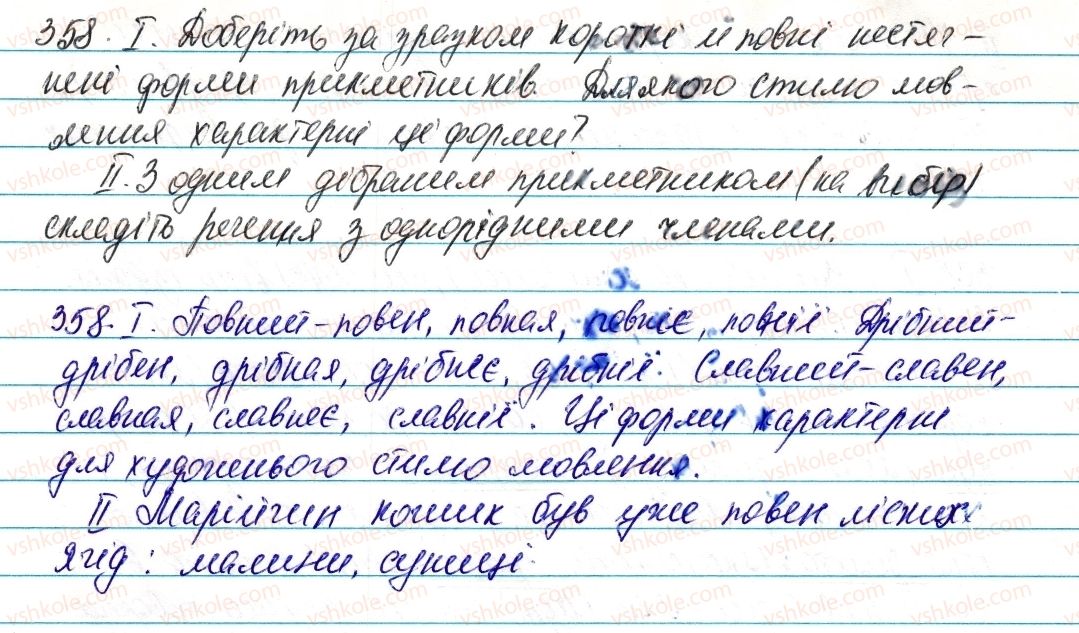 358. І. Доберіть за зразком короткі й повні нестяг-
нені форми прикметників. Для якого стилю мов-
лення характерні ці форми?
ІІ. З одним дібраним прикметником (на вибір)
складіть речення з однорідними членами.
358. І. Повний - повен, повная, повнеє, повнії. Дрібний -
дрібен, дрібная, дрібнеє, дрібнії. Славний - славен,
славная, славнеє, славнії. Ці форми характерні
для художнього стилю мовлення.
ІІ Марійчин кошик був уже повен лісних
ягід: малини, суниці.